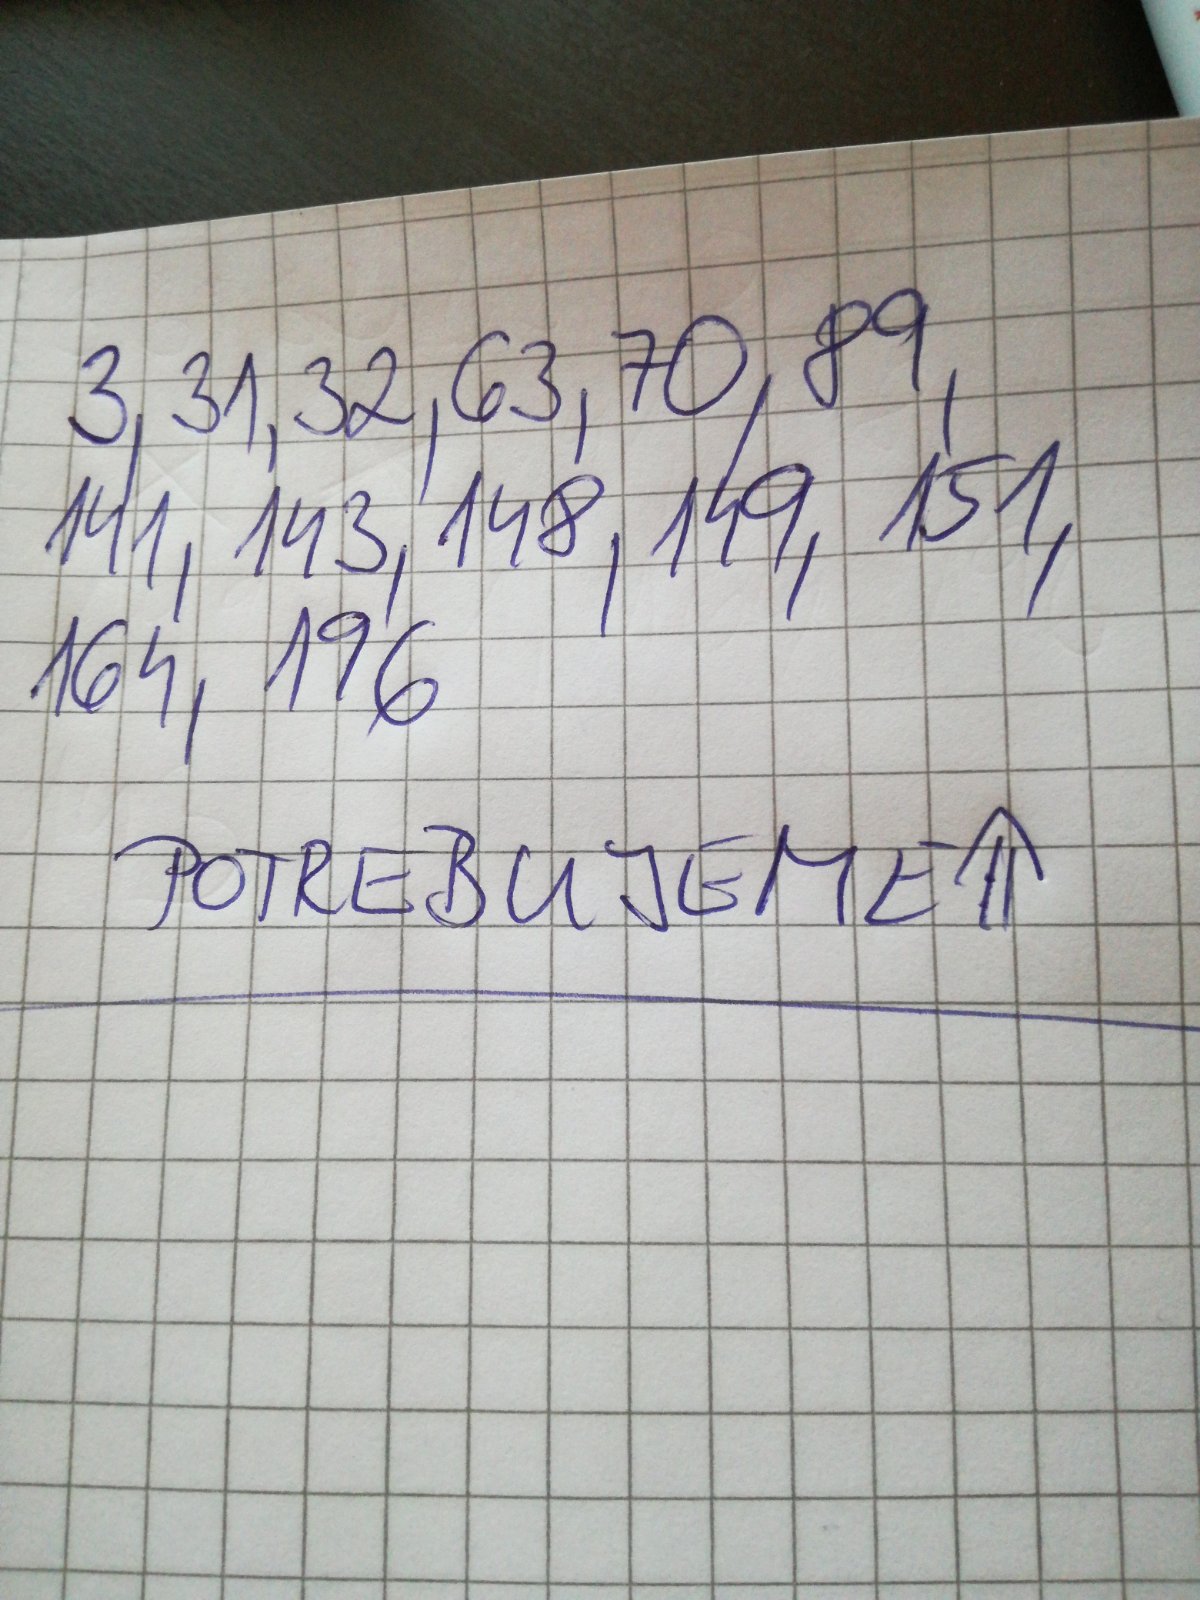 3, 31, 32, 63, 70, 89,
141, 143, 148, 149, 151,
164, 196
POTREBUJEME ⇑